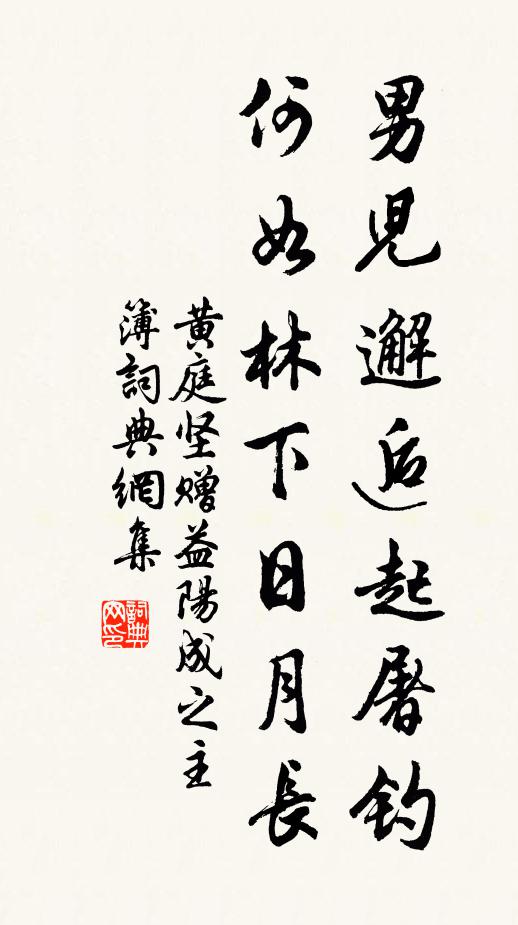 男兒邂逅起屠钓
何如林下日月長
黄庭坚赠益陽成之主
簿詞典網集
詞典
网印